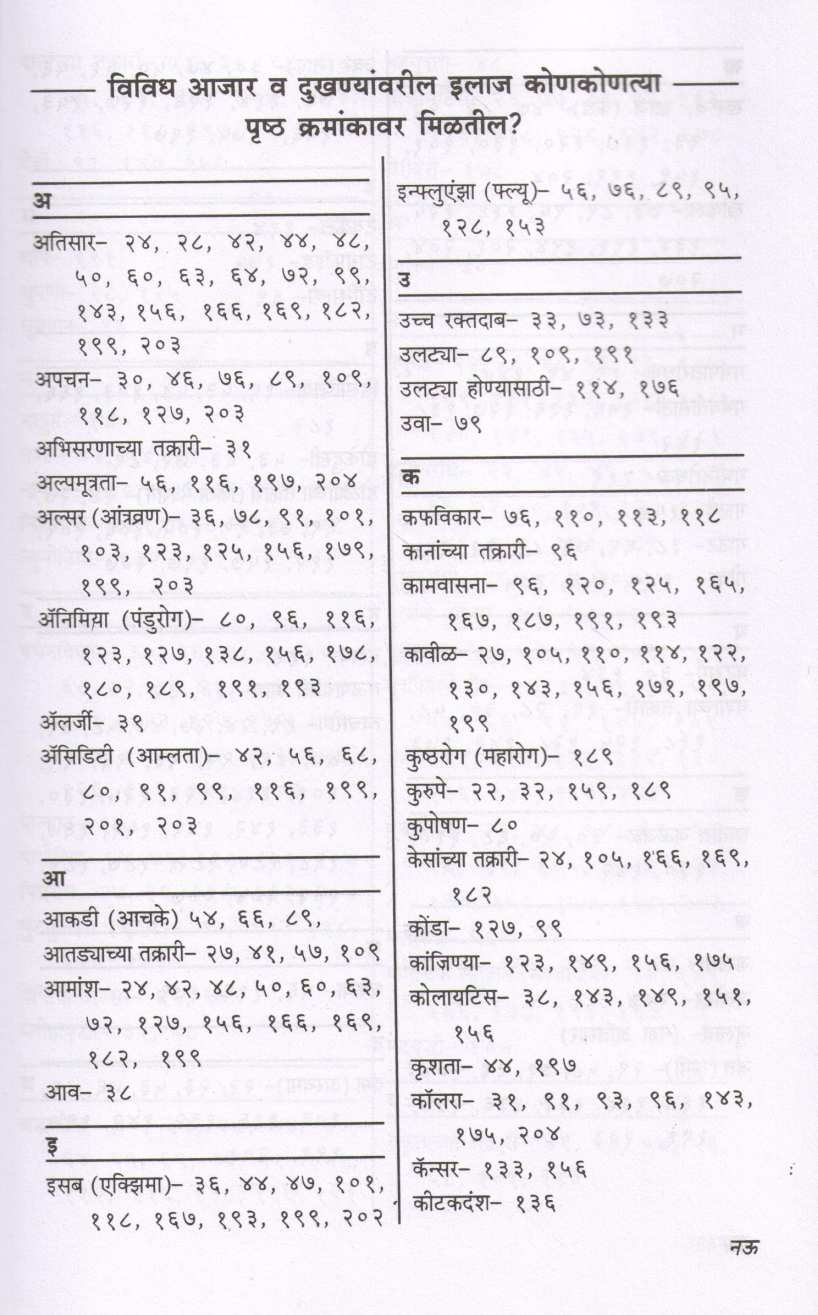 विविध आजार व दुखण्यांवरील इलाज कोणकोणत्या
पृष्ठ क्रमांकावर मिळतील?
अ
अतिसार– २४, २८, ४२, ४४, ४८,
५०, ६०, ६३, ६४, ७२, ९९,
१४३, १५६, १६६, १६९, १८२,
१९९, २०३
अपचन– ३०, ४६, ७६, ८९, १०९,
११८, १२७, २०३
अभिसरणाच्या तक्रारी– ३१
अल्पमूत्रता– ५६, ११६, १९७, २०४
अल्सर (आंत्रव्रण)– ३६, ७८, ९१, १०१,
१०३, १२३, १२५, १५६, १७९,
१९९, २०३
ॲनिमिया (पंडुरोग)– ८०, ९६, ११६,
१२३, १२७, १३८, १५६, १७८,
१८०, १८९, १९१, १९३
ॲलर्जी– ३९
ॲसिडिटी (आम्लता)– ४२, ५६, ६८,
८०, ९१, ९९, ११६, १९९,
२०१, २०३
आ
आकडी (आचके) ५४, ६६, ८९,
आतड्याच्या तक्रारी– २७, ४१, ५७, १०९
आमांश– २४, ४२, ४८, ५०, ६०, ६३,
७२, १२७, १५६, १६६, १६९,
१८२, १९९
आव– ३८
इ
इसब (एक्झिमा)– ३६, ४४, ४७, १०१,
११८, १६७, १९३, १९९, २०२
इन्फ्लुएंझा (फ्ल्यू)– ५६, ७६, ८९, ९५,
१२८, १५३
उ
उच्च रक्तदाब– ३३, ७३, १३३
उलट्या– ८९, १०९, १९१
उलट्या होण्यासाठी– ११४, १७६
उवा– ७९
क
कफविकार– ७६, ११०, ११३, ११८
कानाच्या तक्रारी– ९६
कामवासना– ९६, १२०, १२५, १६५,
१६७, १८७, १९१, १९३
कावीळ– २७, १०५, ११०, ११४, १२२,
१३०, १४३, १५६, १७१, १९७,
१९९
कुष्ठरोग (महारोग)– १८९
कुरुपे– २२, ३२, १५९, १८९
कुपोषण– ८०
केसांच्या तक्रारी– २४, १०५, १६६, १६९,
१८२
कोंडा– १२७, ९९
कांजिण्या– १२३, १४९, १५६, १७५
कोलायटिस– ३८, १४३, १४९, १५१,
१५६
कृशता– ४४, १९७
कॉलरा– ३१, ९१, ९३, ९६, १४३,
१७५, २०४
कॅन्सर– १३३, १५६
कीटकदंश– १३६
नऊ